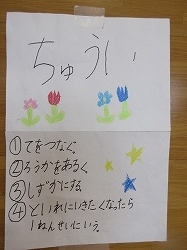 ちゅうい
①てをつなぐ。
②ろうかをあるく。
③しずかにする。
④といれにいきたくなったら
1ねんせいにいう。